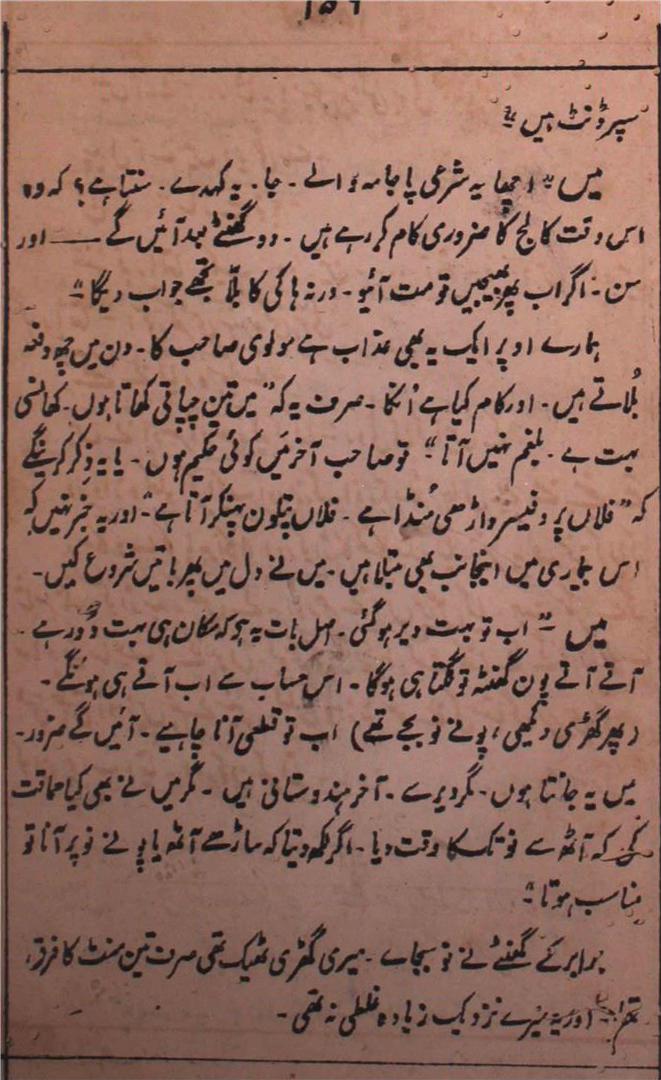 ۱۵۶
سپرڈنٹ ہیں"
میں "اچھا یہ شرعی پاجامہ والے۔ جا۔ یہ کہدے۔ سنتا ہے؟ کہ وہ
اس وقت کالج کا ضروری کام کر رہے ہیں۔ دو گھنٹے بعد آئیں گے —— اور
سن۔ اگر اب پھر بھیجیں تو مت آئیو۔ ورنہ ہاکی کا بلّا تجھے جواب دیگا"
ہمارے اوپر ایک یہ بھی عذاب ہے مولوی صاحب کا۔ دن میں چھ دفعہ
بُلاتے ہیں۔ اور کام کیا ہے اُنکا۔ صرف یہ کہ "میں تین چپاتی کھاتا ہوں۔ کھانسی
بہت ہے۔ بلغم نہیں آتا" تو صاحب آخر میں کوئی حکیم ہوں۔ یا یہ ذکر کرینگے
کہ "فلاں پروفیسر داڑھی مُنڈا ہے۔ فلاں پتلون پہنکر آتا ہے"۔ اور یہ خبر نہیں کہ
اس بیماری میں اینجانب بھی مبتلا ہیں۔ میں نے دل میں پھر باتیں شروع کیں۔
میں "اب تو بہت دیر ہو گئی۔ اصل بات یہ ہو کہ مکان ہی بہت دُور ہے۔
آتے آتے پون گھنٹہ تو لگتا ہی ہوگا۔ اس حساب سے اب آتے ہی ہونگے۔
(پھر گھڑی دیکھی، پونے نو بجے تھے) اب تو قطعی آنا چاہیے۔ آئیں گے ضرور۔
میں یہ جانتا ہوں۔ مگر دیر سے۔ آخر ہندوستانی ہیں۔ مگر میں نے بھی کیا حماقت
کی کہ آٹھ سے نو تک کا وقت دیا۔ اگر لکھ دیتا کہ ساڑھے آٹھ یا پونے نو پر آنا تو
مناسب ہوتا"
برابر کے گھنٹے نے نو بجاے۔ میری گھڑی ٹھیک تھی صرف تین منٹ کا فرق
اور یہ میرے نزدیک زیادہ غلطی نہ تھی۔